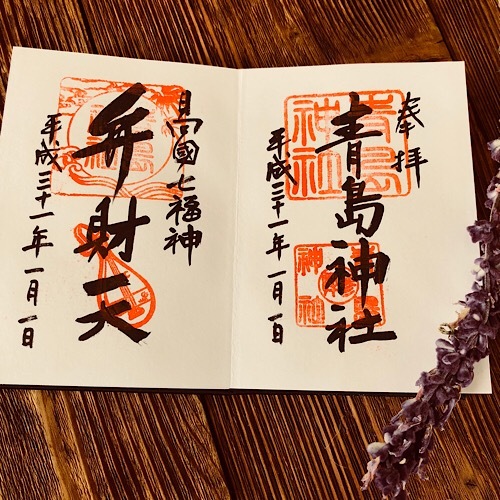 奉拝
青島神社
平成三十一年一月一日
青島神社
神社
七福神
弁財天
平成三十一年一月一日